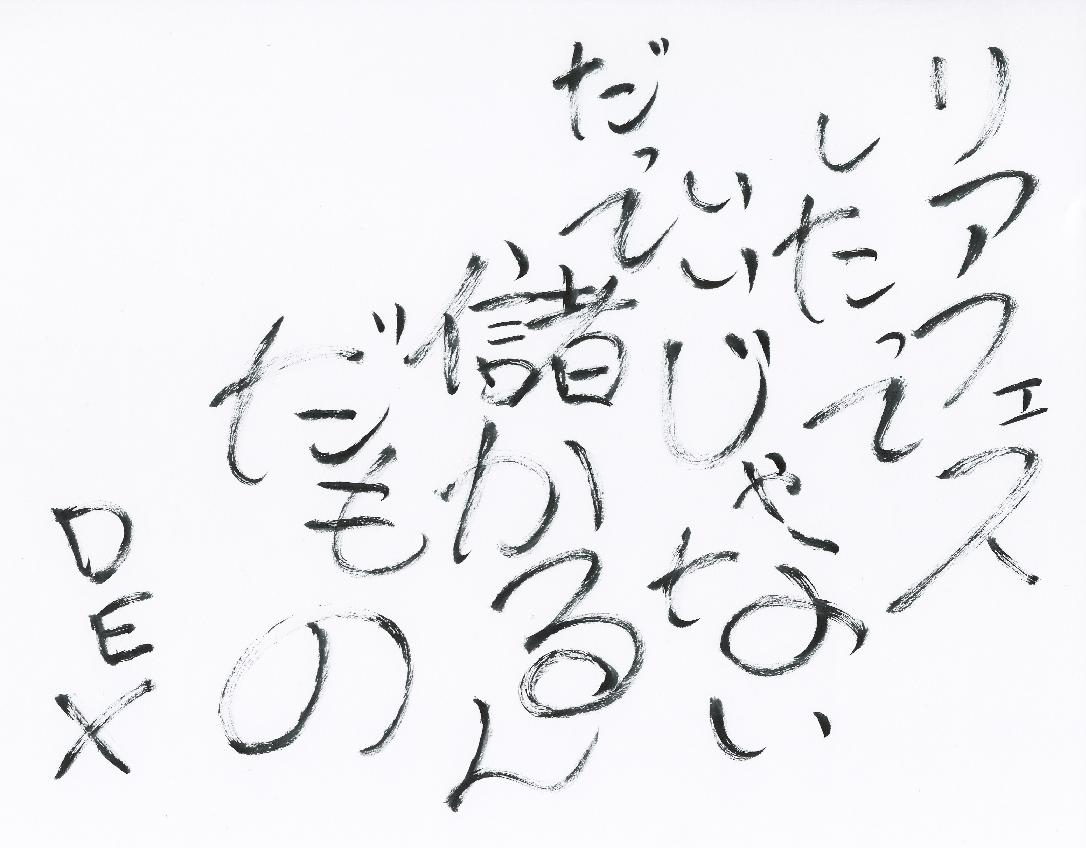 リアフェス
したって
いいじゃない
だって
儲かるん
だもの
DEX